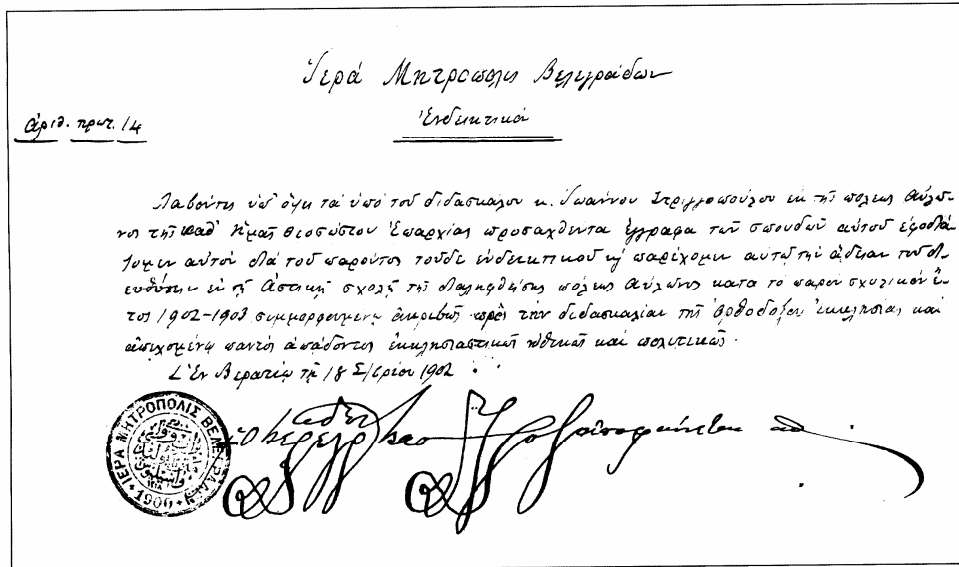 Ἱερά Μητρόπολις Βελεγράδων
Ἐνδεικτικά
Ἀριθ. πρωτ. 14
Λαβόντες ὑπ' ὄψει τά ὑπό τοῦ διδασκάλου κ. Ἰωάννου Στριγγοπούλου ἐκ τῆς πόλεως Αὐλῶ-
νος τῆς καθ' ἡμᾶς θεοσώστου Ἐπαρχίας προσαχθέντα ἔγγραφα τῶν σπουδῶν αὐτοῦ ἐφοδιά
ζομεν αὐτόν διά τοῦ παρόντος τοῦδε ἐνδεικτικοῦ κ παρέχομεν αὐτῷ τήν ἄδειαν τοῦ δι-
ευθύνειν ἐν τῇ Ἀστικῇ σχολῇ τῆς διαληφθείσης πόλεως Αὐλῶνος κατα το παρον σχολικόν ἔ-
τος 1902-1903 συμμορφουμένῳ ἀκριβῶς πρός τήν διδασκαλίαν τῆς ὀρθοδόξου ἐκκλησίας καί
ἀπεχομένῳ παντός ἀπᾴδοντος ἐκκλησιαστικῶς ἠθικῶς καί πολιτικῶς.
Ἐν Βερατίῳ τῇ 18 Σ/βρίου 1902
ΙΕΡΑ ΜΗΤΡΟΠΟΛΙΣ ΒΕΛΕΓΡΑΔΩΝ
1900